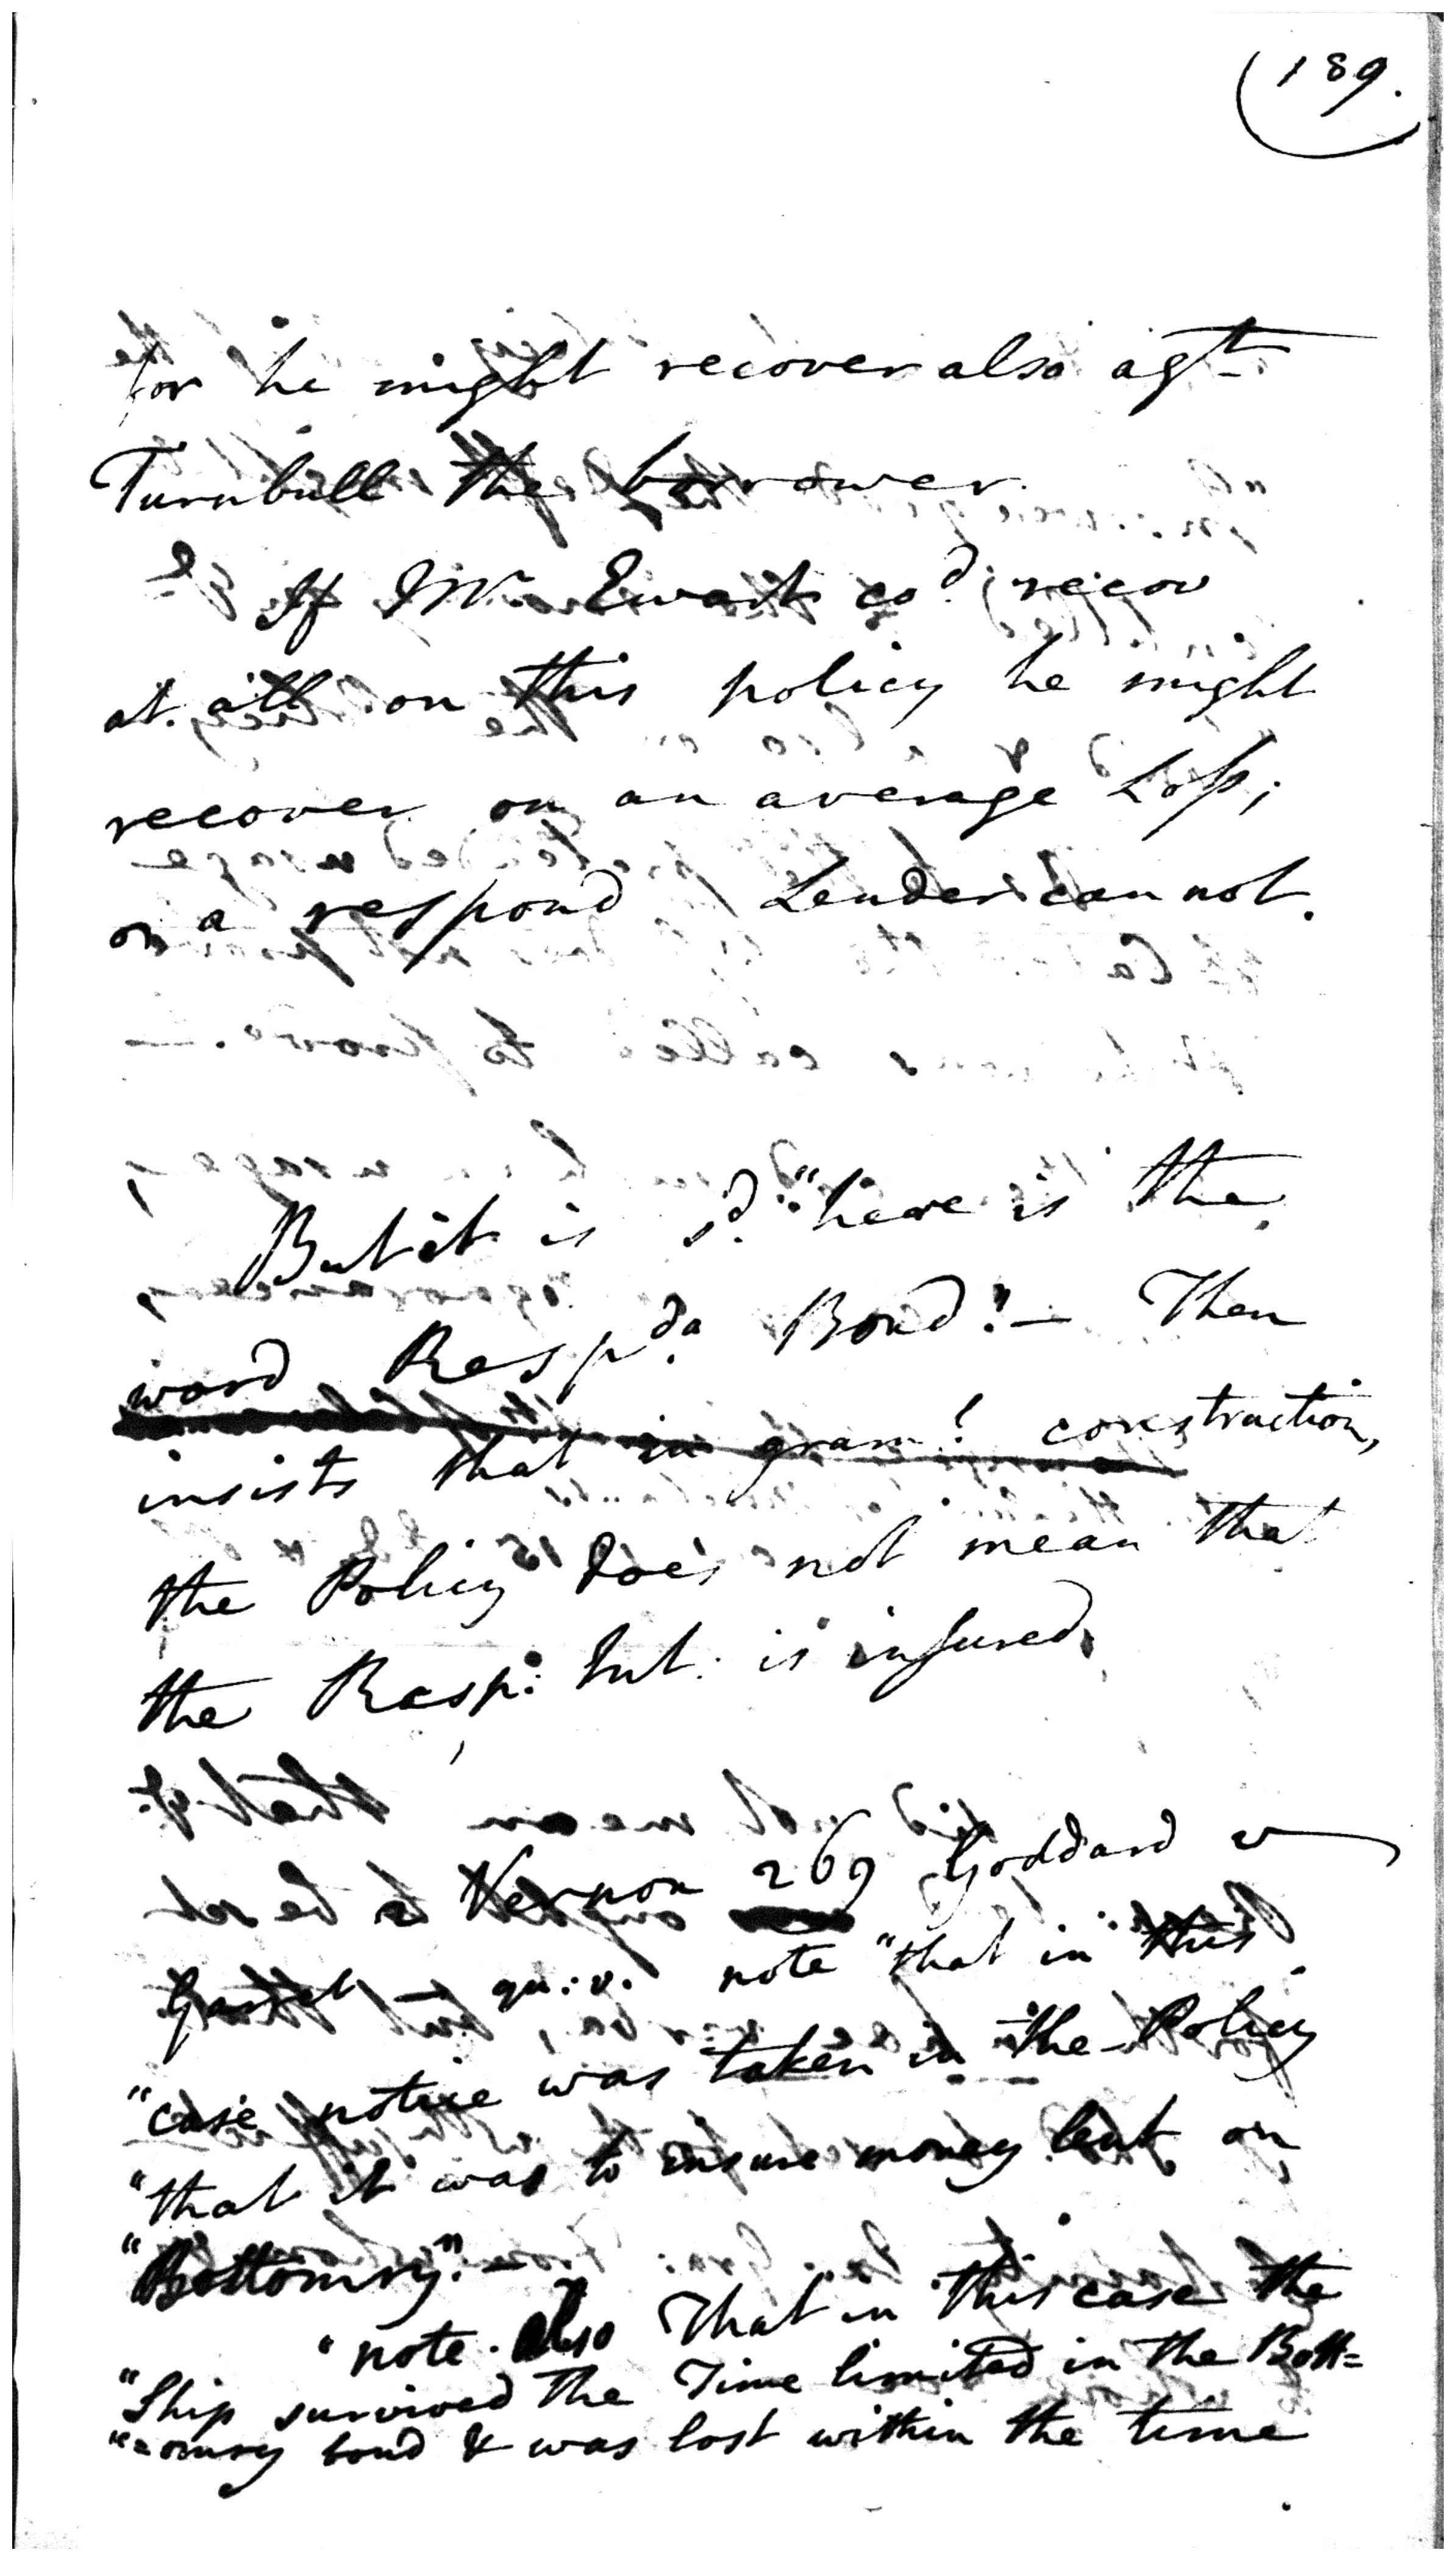 189.
for he might recover also agt
Turnbull the borrower.
If Mr Ewart cod. recov
at all on this policy he might
recover on an average Loss;
on a respond Lender cannot.
But it is sd. "here is the
word Respda Bond." — Then
insists that in gram.l construction,
the Policy does not mean that
the Resp: Int. is insured.
2 Vernon 269 Goddard v
Garret — qu: v. note "that in this
"case notice was taken in the Policy
"that it was to insure money lent on
"Bottomry." —
"note also That in this case the
"Ship survived the Time limited in the Bott=
"=omry bond & was lost within the time